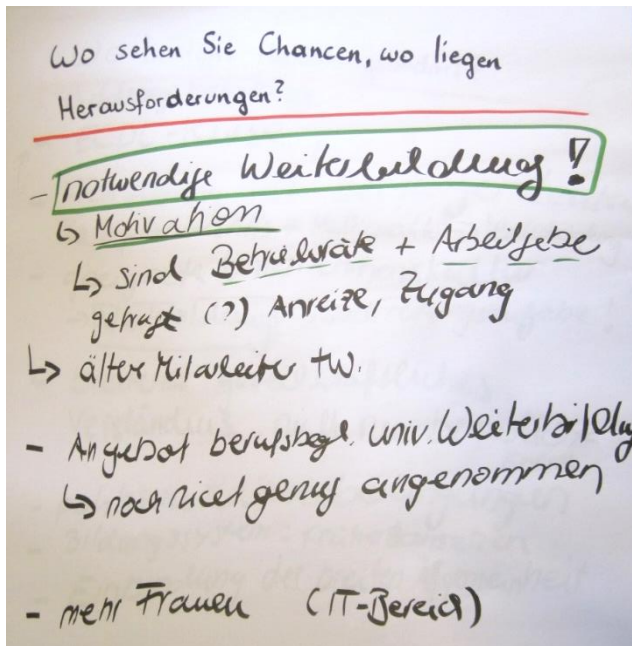 Wo sehen Sie Chancen, wo liegen
Herausforderungen?
- notwendige Weiterbildung!
↳ Motivation
↳ sind Betriebsräte + Arbeitgebe
gefragt (?) Anreize, Zugang
↳ älter Mitarbeiter tw.
- Angebot berufsbegl. univ. Weiterbildung
↳ noch nicht genug angenommen
- mehr Frauen (IT-Bereich)